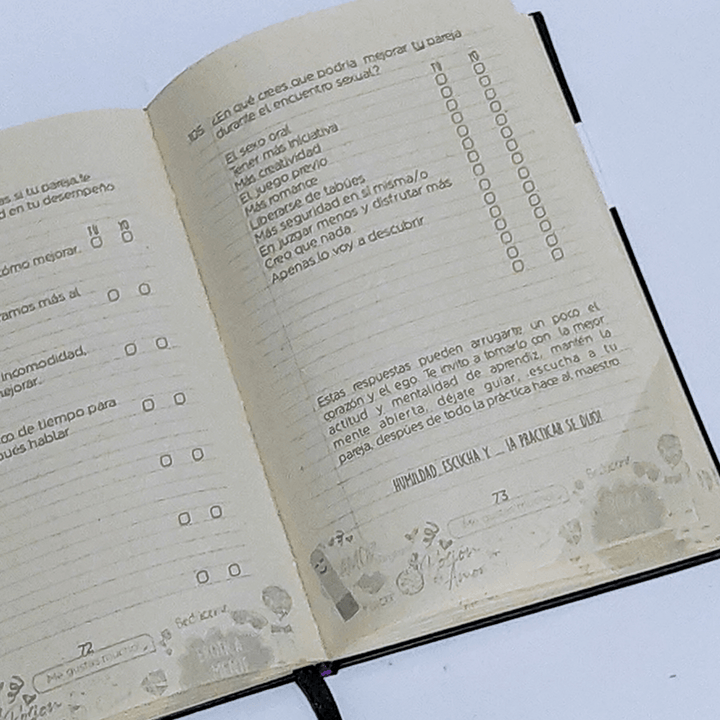 as si tu pareja te
d en tu desempeño
TÚ YO
cómo mejorar.
ramos más al
incomodidad,
mejorar.
co de tiempo para
pués hablar
72
Me gustas mucho
Seducirte
105 ¿En qué crees que podría mejorar tu pareja
durante el encuentro sexual?
TÚ YO
El sexo oral
Tener más iniciativa
Más creatividad
El juego previo
Más romance
Liberarse de tabúes
Más seguridad en sí misma/o
En juzgar menos y disfrutar más
Creo que nada
Apenas lo voy a descubrir
Estas respuestas pueden arrugarte un poco el
corazón y el ego. Te invito a tomarlo con la mejor
actitud y mentalidad de aprendiz, mantén la
mente abierta, déjate guiar, escucha a tu
pareja, después de todo la práctica hace al maestro.
HUMILDAD, ESCUCHA Y ... ¡A PRACTICAR SE DIJO!
73
Me gustas mucho
Seducirte
AMOR
Poción
de
Amor